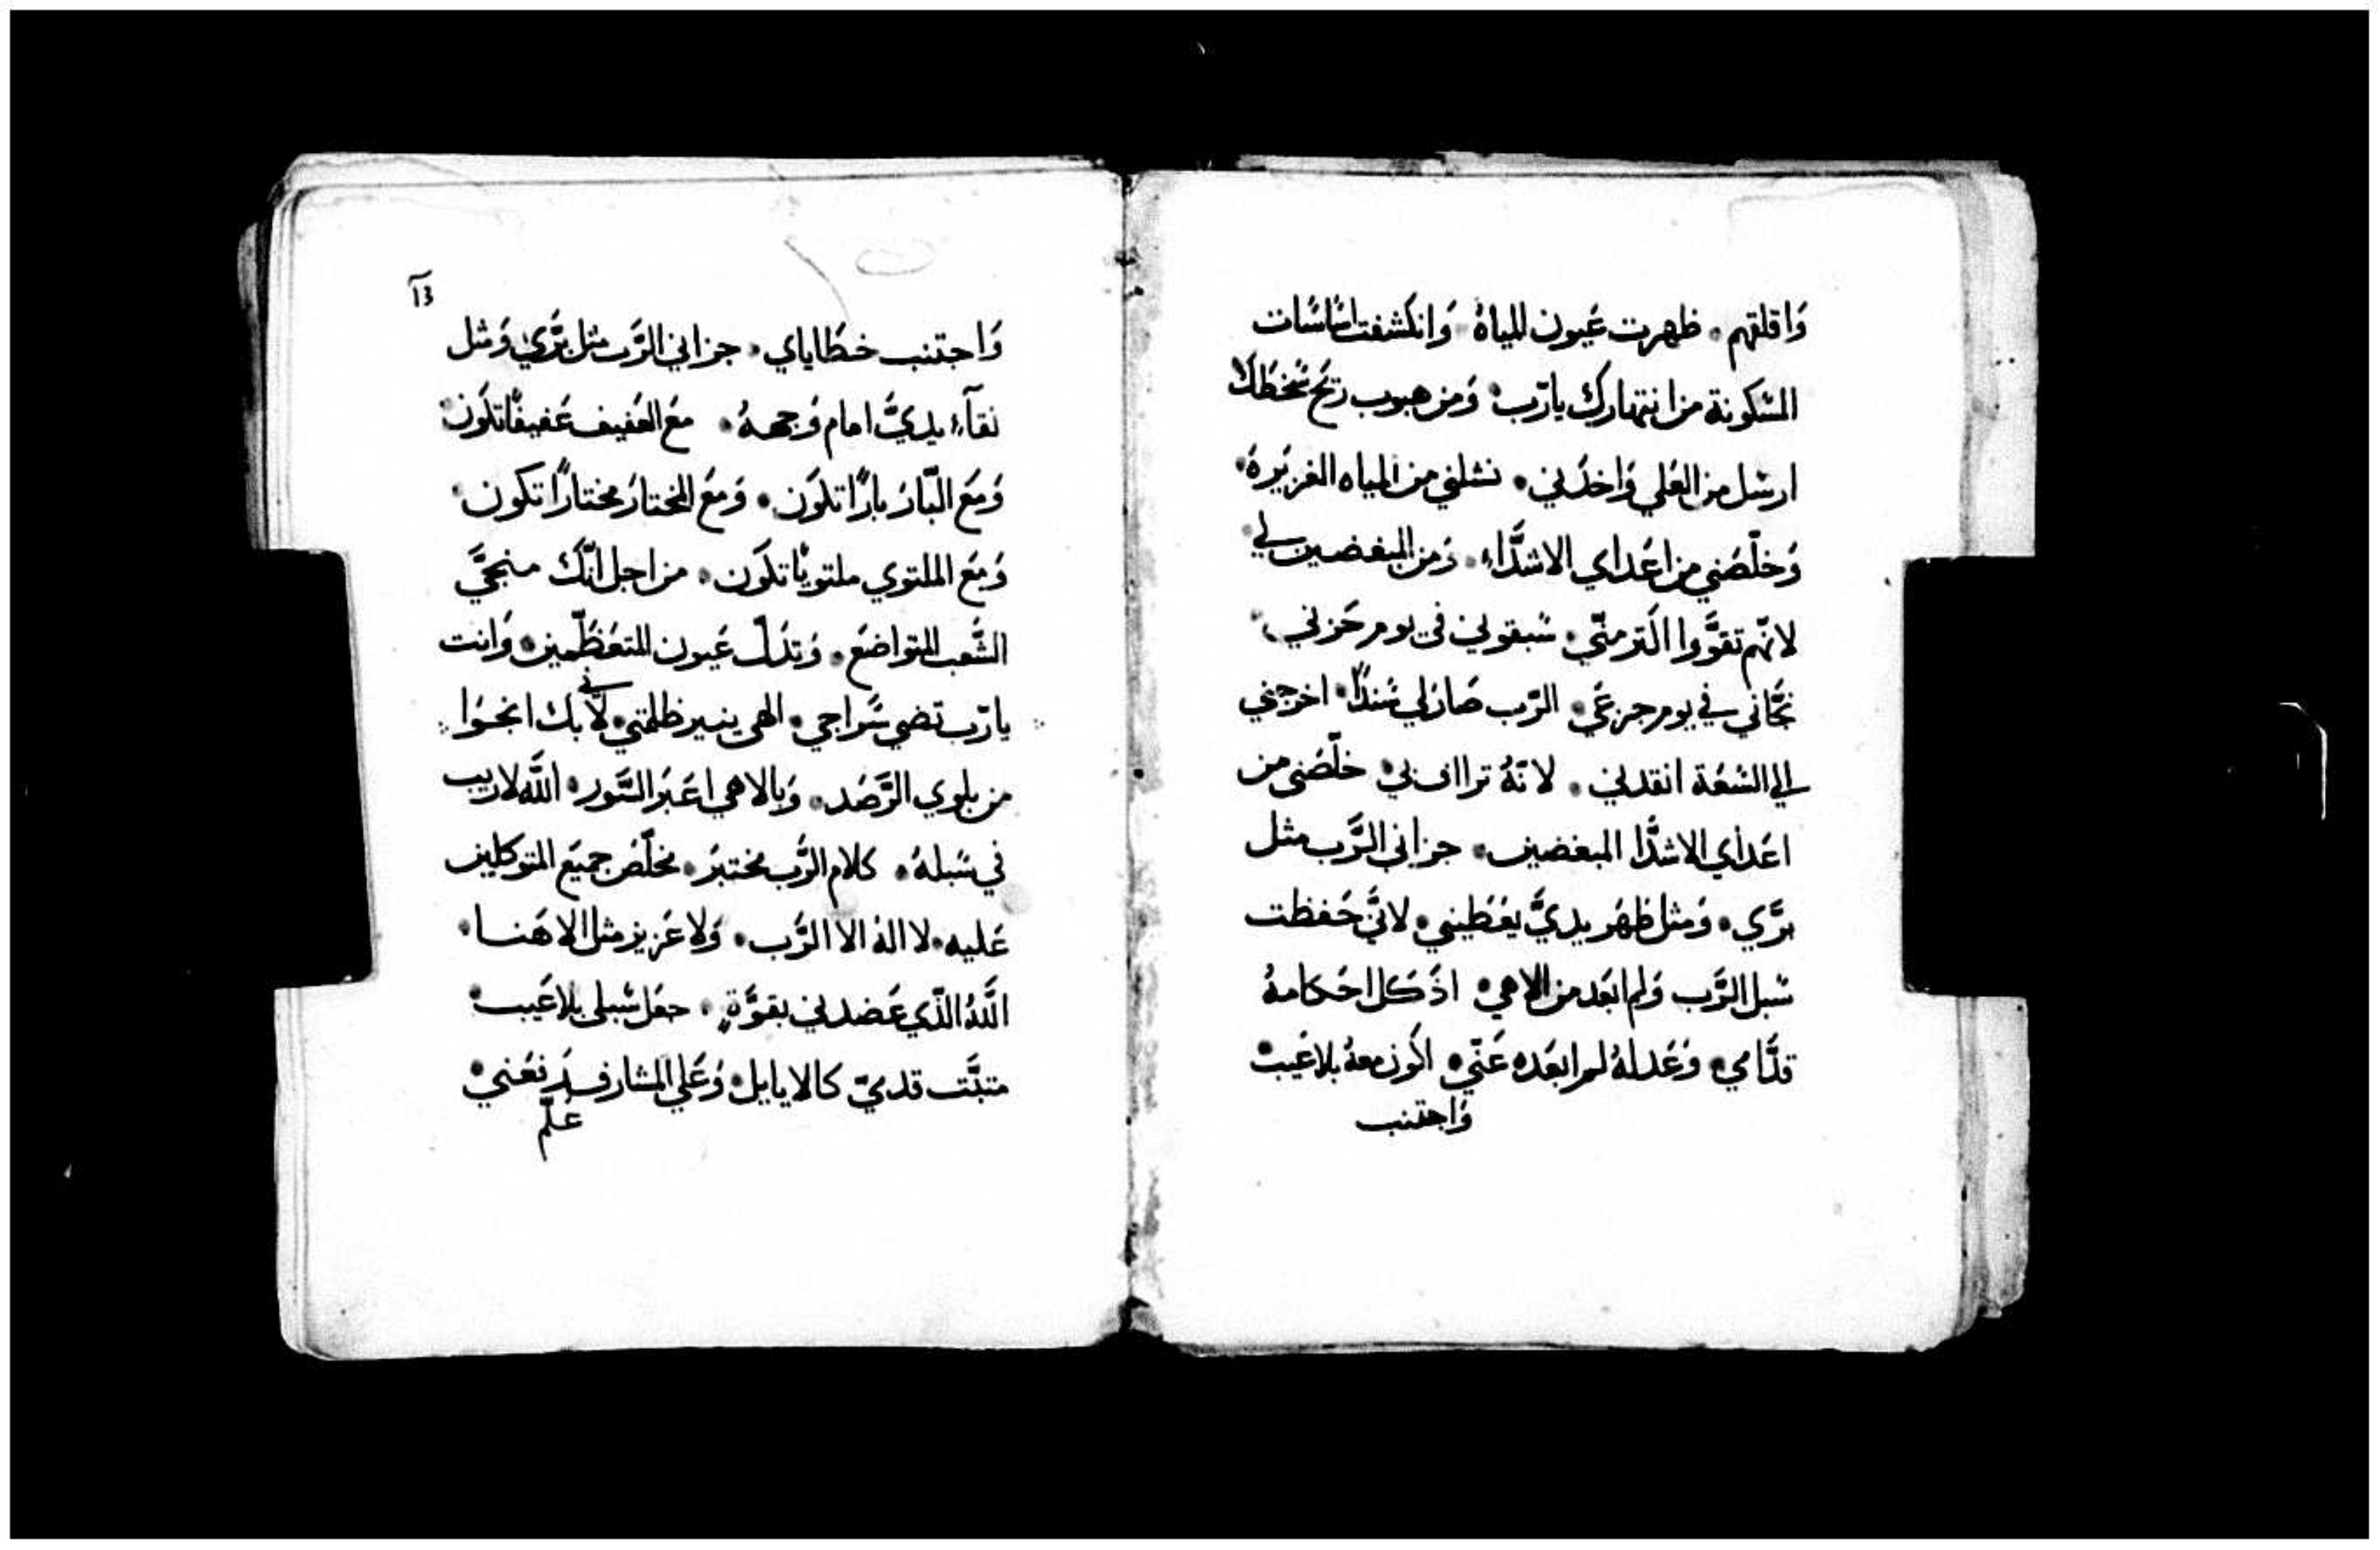 وَاقلقهم. ظهرت عَيون المياهُ وَانكشفت اسَّاسَات
المسَكونة من انتهارك يا رَّب. وَمن هبوب ريَح سَخطك
ارسَل من العَلي وَاخدَني. نشلني من المياه الغزيَرهُ.
وَخلّصَني من اعَداي الاشدَّاء. وَمن المبغضين لي
لانّهم تقوَّوا اكَتر منّي. سَبقوني في يوم حَزني.
نجَّاني في يوم جزعَي. الرَّب صَار لي سَندًا. اخرجني
الي السَعَة انقدني. لانّهُ تراف بي. خلّصَني من
اعَداي الاشدَّا المبغضين. جزاني الرَّب مثل
برَّي. وَمثل طَهر يديَّ يعَطَيني. لانّي حَفظت
سَبل الرَّب وَلم ابعَد من الاهي. اذ كَل احَكامهُ
قدَّامي. وَعَدلهُ لم ابعَده عَنّي. اكَون معهُ بلا عَيب.
وَاجتنب
13
وَاجتنب خطَاياي. جزاني الرَّب مثل برَّي وَمثل
نقآء يديَّ امام وَجههُ. معَ العَفيف عَفيفًا تكَون.
وَمعَ البّارَ بارًا تكَون. وَمعَ المختارَ مختارًا تكون.
وَمعَ الملتوي ملتويًا تكَون. من اجل انّكَ منجيَّ
الشَّعب المتواضعَ. وَتذلّ عَيون المتعَظّمين. وَانت
يا رَّب تضي سَراجي. الهي ينير ظلمتي. لانّي بك انجوا
من بلوي الرَّصَد. وَبالاهي اعَبرَ السَّور. اللَّه لا ريب
في سَبلهُ. كلام الرَّب مختبرَ. مخلّصَ جميَع المتوكلين
عَليه. لا الهَ الا الرَّب. وَلا عَزيز مثل الاهَنا.
اللَّهُ الذّي عَضدني بقوَّةٍ. جعَل سَبلي بلا عَيب.
متبَّت قدميّ كالايايل. وَعَلي المشارف يرَفعَني.
عَلّم